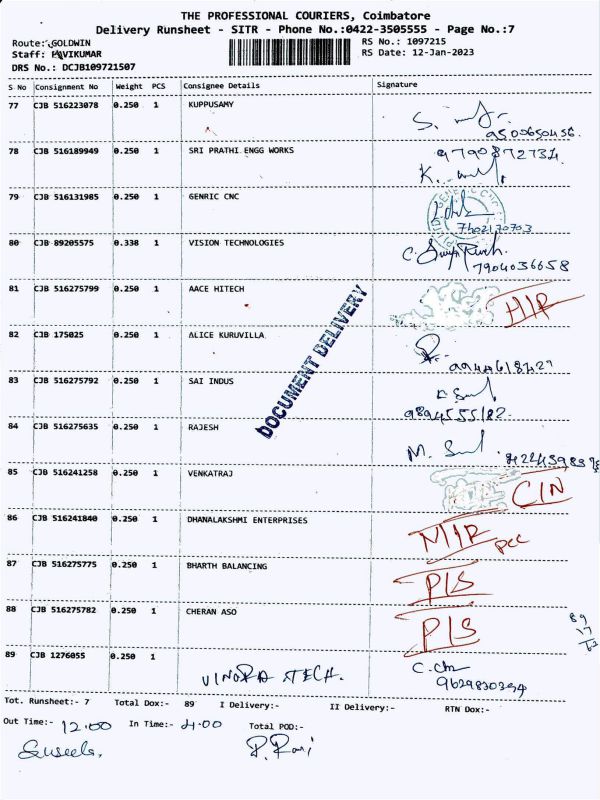 THE PROFESSIONAL COURIERS, Coimbatore
Delivery Runsheet - SITR - Phone No.:0422-3505555 - Page No.:7
Route: GOLDWIN RS No.: 1097215
Staff: PAVIKUMAR RS Date: 12-Jan-2023
DRS No.: DCJB109721507
S No Consignment No Weight PCS Consignee Details Signature
77 CJB 516223078 0.250 1 KUPPUSAMY
9500650456.
78 CJB 516189949 0.250 1 SRI PRATHI ENGG WORKS 9790872734.
79 CJB 516131985 0.250 1 GENRIC CNC
7402170703
80 CJB 89205575 0.338 1 VISION TECHNOLOGIES
7904036658
81 CJB 516275799 0.250 1 AACE HITECH
82 CJB 175025 0.250 1 ALICE KURUVILLA
83 CJB 516275792 0.250 1 SAI INDUS
9894555182.
DOCUMENT DELIVERY
84 CJB 516275635 0.250 1 RAJESH
85 CJB 516241258 0.250 1 VENKATRAJ
86 CJB 516241840 0.250 1 DHANALAKSHMI ENTERPRISES
87 CJB 516275775 0.250 1 BHARTH BALANCING P|S
88 CJB 516275782 0.250 1 CHERAN ASO P|S
89
17
89 CJB 1276055 0.250 1
9629830394
Tot. Runsheet:- 7 Total Dox:- 89 I Delivery:- II Delivery:- RTN Dox:-
Out Time:- 12.00 In Time:- 4.00 Total POD:-